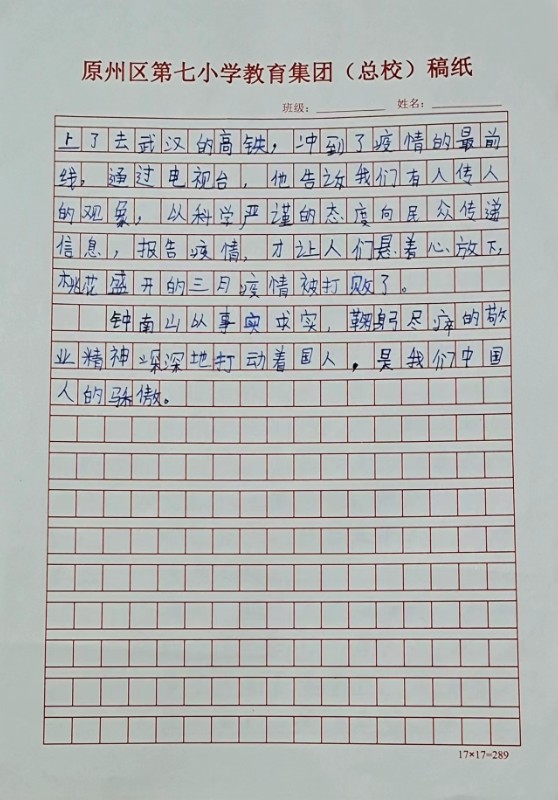 原州区第七小学教育集团（总校）稿纸
班级： 姓名：
上了去武汉的高铁，冲到了疫情的最前
线，通过电视台，他告诉我们有人传人
的观象，以科学严谨的态度向民众传递
信息，报告疫情，才让人们悬着心放下，
桃花盛开的三月疫情被打败了。
钟南山以事实求实，鞠躬尽瘁的敬
业精神深深地打动着国人，是我们中国
人的骄傲。
17×17=289